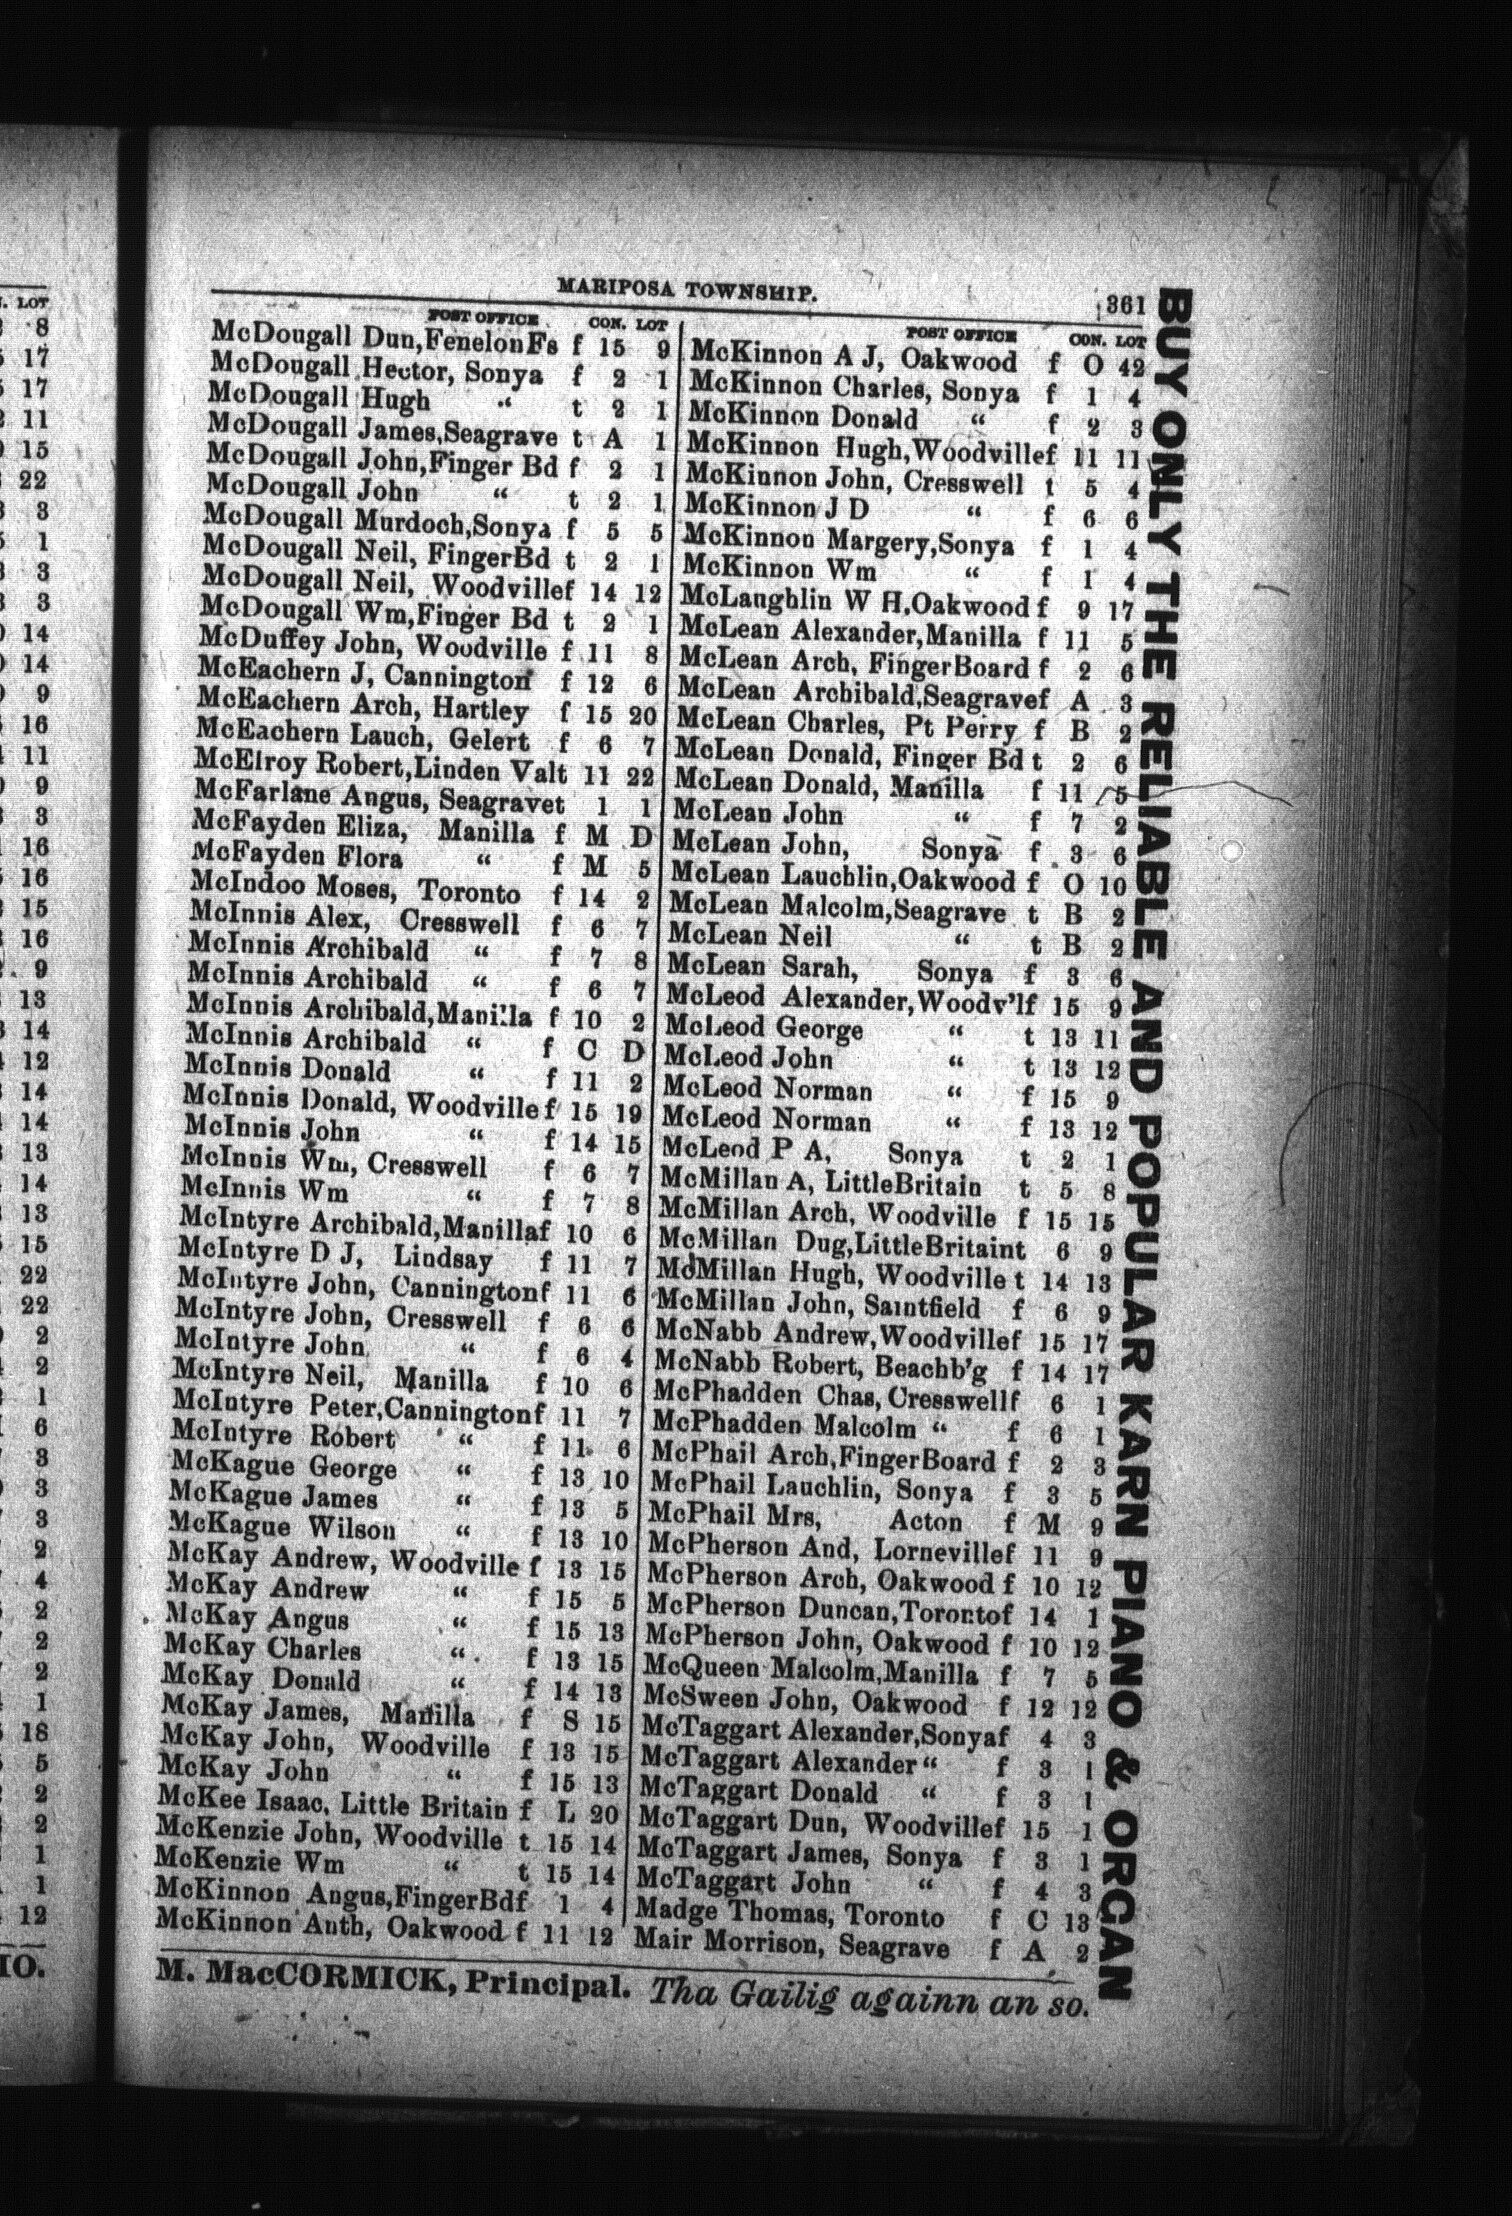 MARIPOSA TOWNSHIP. 361
POST OFFICE CON. LOT
McDougall Dun,FenelonFs f 15 9
McDougall Hector, Sonya f 2 1
McDougall Hugh “ t 2 1
McDougall James,Seagrave t A 1
McDougall John,Finger Bd f 2 1
McDougall John “ t 2 1
McDougall Murdoch,Sonya f 5 5
McDougall Neil, FingerBd t 2 1
McDougall Neil, Woodvillef 14 12
McDougall Wm,Finger Bd t 2 1
McDuffey John, Woodville f 11 8
McEachern J, Cannington f 12 6
McEachern Arch, Hartley f 15 20
McEachern Lauch, Gelert f 6 7
McElroy Robert,Linden Valt 11 22
McFarlane Angus, Seagravet 1 1
McFayden Eliza, Manilla f M D
McFayden Flora “ f M 5
McIndoo Moses, Toronto f 14 2
McInnis Alex, Cresswell f 6 7
McInnis Archibald “ f 7 8
McInnis Archibald “ f 6 7
McInnis Archibald,Manilla f 10 2
McInnis Archibald “ f C D
McInnis Donald “ f 11 2
McInnis Donald, Woodville f 15 19
McInnis John “ f 14 15
McInnis Wm, Cresswell f 6 7
McInnis Wm “ f 7 8
McIntyre Archibald,Manillaf 10 6
McIntyre D J, Lindsay f 11 7
McIntyre John, Canningtonf 11 6
McIntyre John, Cresswell f 6 6
McIntyre John “ f 6 4
McIntyre Neil, Manilla f 10 6
McIntyre Peter,Canningtonf 11 7
McIntyre Robert “ f 11 6
McKague George “ f 13 10
McKague James “ f 13 5
McKague Wilson “ f 13 10
McKay Andrew, Woodville f 13 15
McKay Andrew “ f 15 5
McKay Angus “ f 15 13
McKay Charles “ f 13 15
McKay Donald “ f 14 13
McKay James, Manilla f S 15
McKay John, Woodville f 13 15
McKay John “ f 15 13
McKee Isaac, Little Britain f L 20
McKenzie John, Woodville t 15 14
McKenzie Wm “ t 15 14
McKinnon Angus,FingerBdf 1 4
McKinnon Anth, Oakwood f 11 12
POST OFFICE CON. LOT
McKinnon A J, Oakwood f O 42
McKinnon Charles, Sonya f 1 4
McKinnon Donald “ f 2 3
McKinnon Hugh,Woodvillef 11 11
McKinnon John, Cresswell t 5 4
McKinnon J D “ f 6 6
McKinnon Margery,Sonya f 1 4
McKinnon Wm “ f 1 4
McLaughlin W H,Oakwood f 9 17
McLean Alexander,Manilla f 11 5
McLean Arch, FingerBoard f 2 6
McLean Archibald,Seagravef A 3
McLean Charles, Pt Perry f B 2
McLean Donald, Finger Bd t 2 6
McLean Donald, Manilla f 11 5
McLean John “ f 7 2
McLean John, Sonya f 3 6
McLean Lauchlin,Oakwood f O 10
McLean Malcolm,Seagrave t B 2
McLean Neil “ t B 2
McLean Sarah, Sonya f 3 6
McLeod Alexander,Woodv’lf 15 9
McLeod George “ t 13 11
McLeod John “ t 13 12
McLeod Norman “ f 15 9
McLeod Norman “ f 13 12
McLeod P A, Sonya t 2 1
McMillan A, LittleBritain t 5 8
McMillan Arch, Woodville f 15 15
McMillan Dug,LittleBritaint 6 9
McMillan Hugh, Woodville t 14 13
McMillan John, Saintfield f 6 9
McNabb Andrew,Woodvillef 15 17
McNabb Robert, Beachb’g f 14 17
McPhadden Chas,Cresswellf 6 1
McPhadden Malcolm “ f 6 1
McPhail Arch,FingerBoard f 2 3
McPhail Lauchlin, Sonya f 3 5
McPhail Mrs, Acton f M 9
McPherson And, Lornevillef 11 9
McPherson Arch, Oakwood f 10 12
McPherson Duncan,Torontof 14 1
McPherson John, Oakwood f 10 12
McQueen Malcolm,Manilla f 7 5
McSween John, Oakwood f 12 12
McTaggart Alexander,Sonyaf 4 3
McTaggart Alexander “ f 3 1
McTaggart Donald “ f 3 1
McTaggart Dun, Woodvillef 15 1
McTaggart James, Sonya f 3 1
McTaggart John “ f 4 3
Madge Thomas, Toronto f C 13
Mair Morrison, Seagrave f A 2
M. MacCORMICK, Principal. Tha Gailig againn an so.
BUY ONLY THE RELIABLE AND POPULAR KARN PIANO & ORGAN